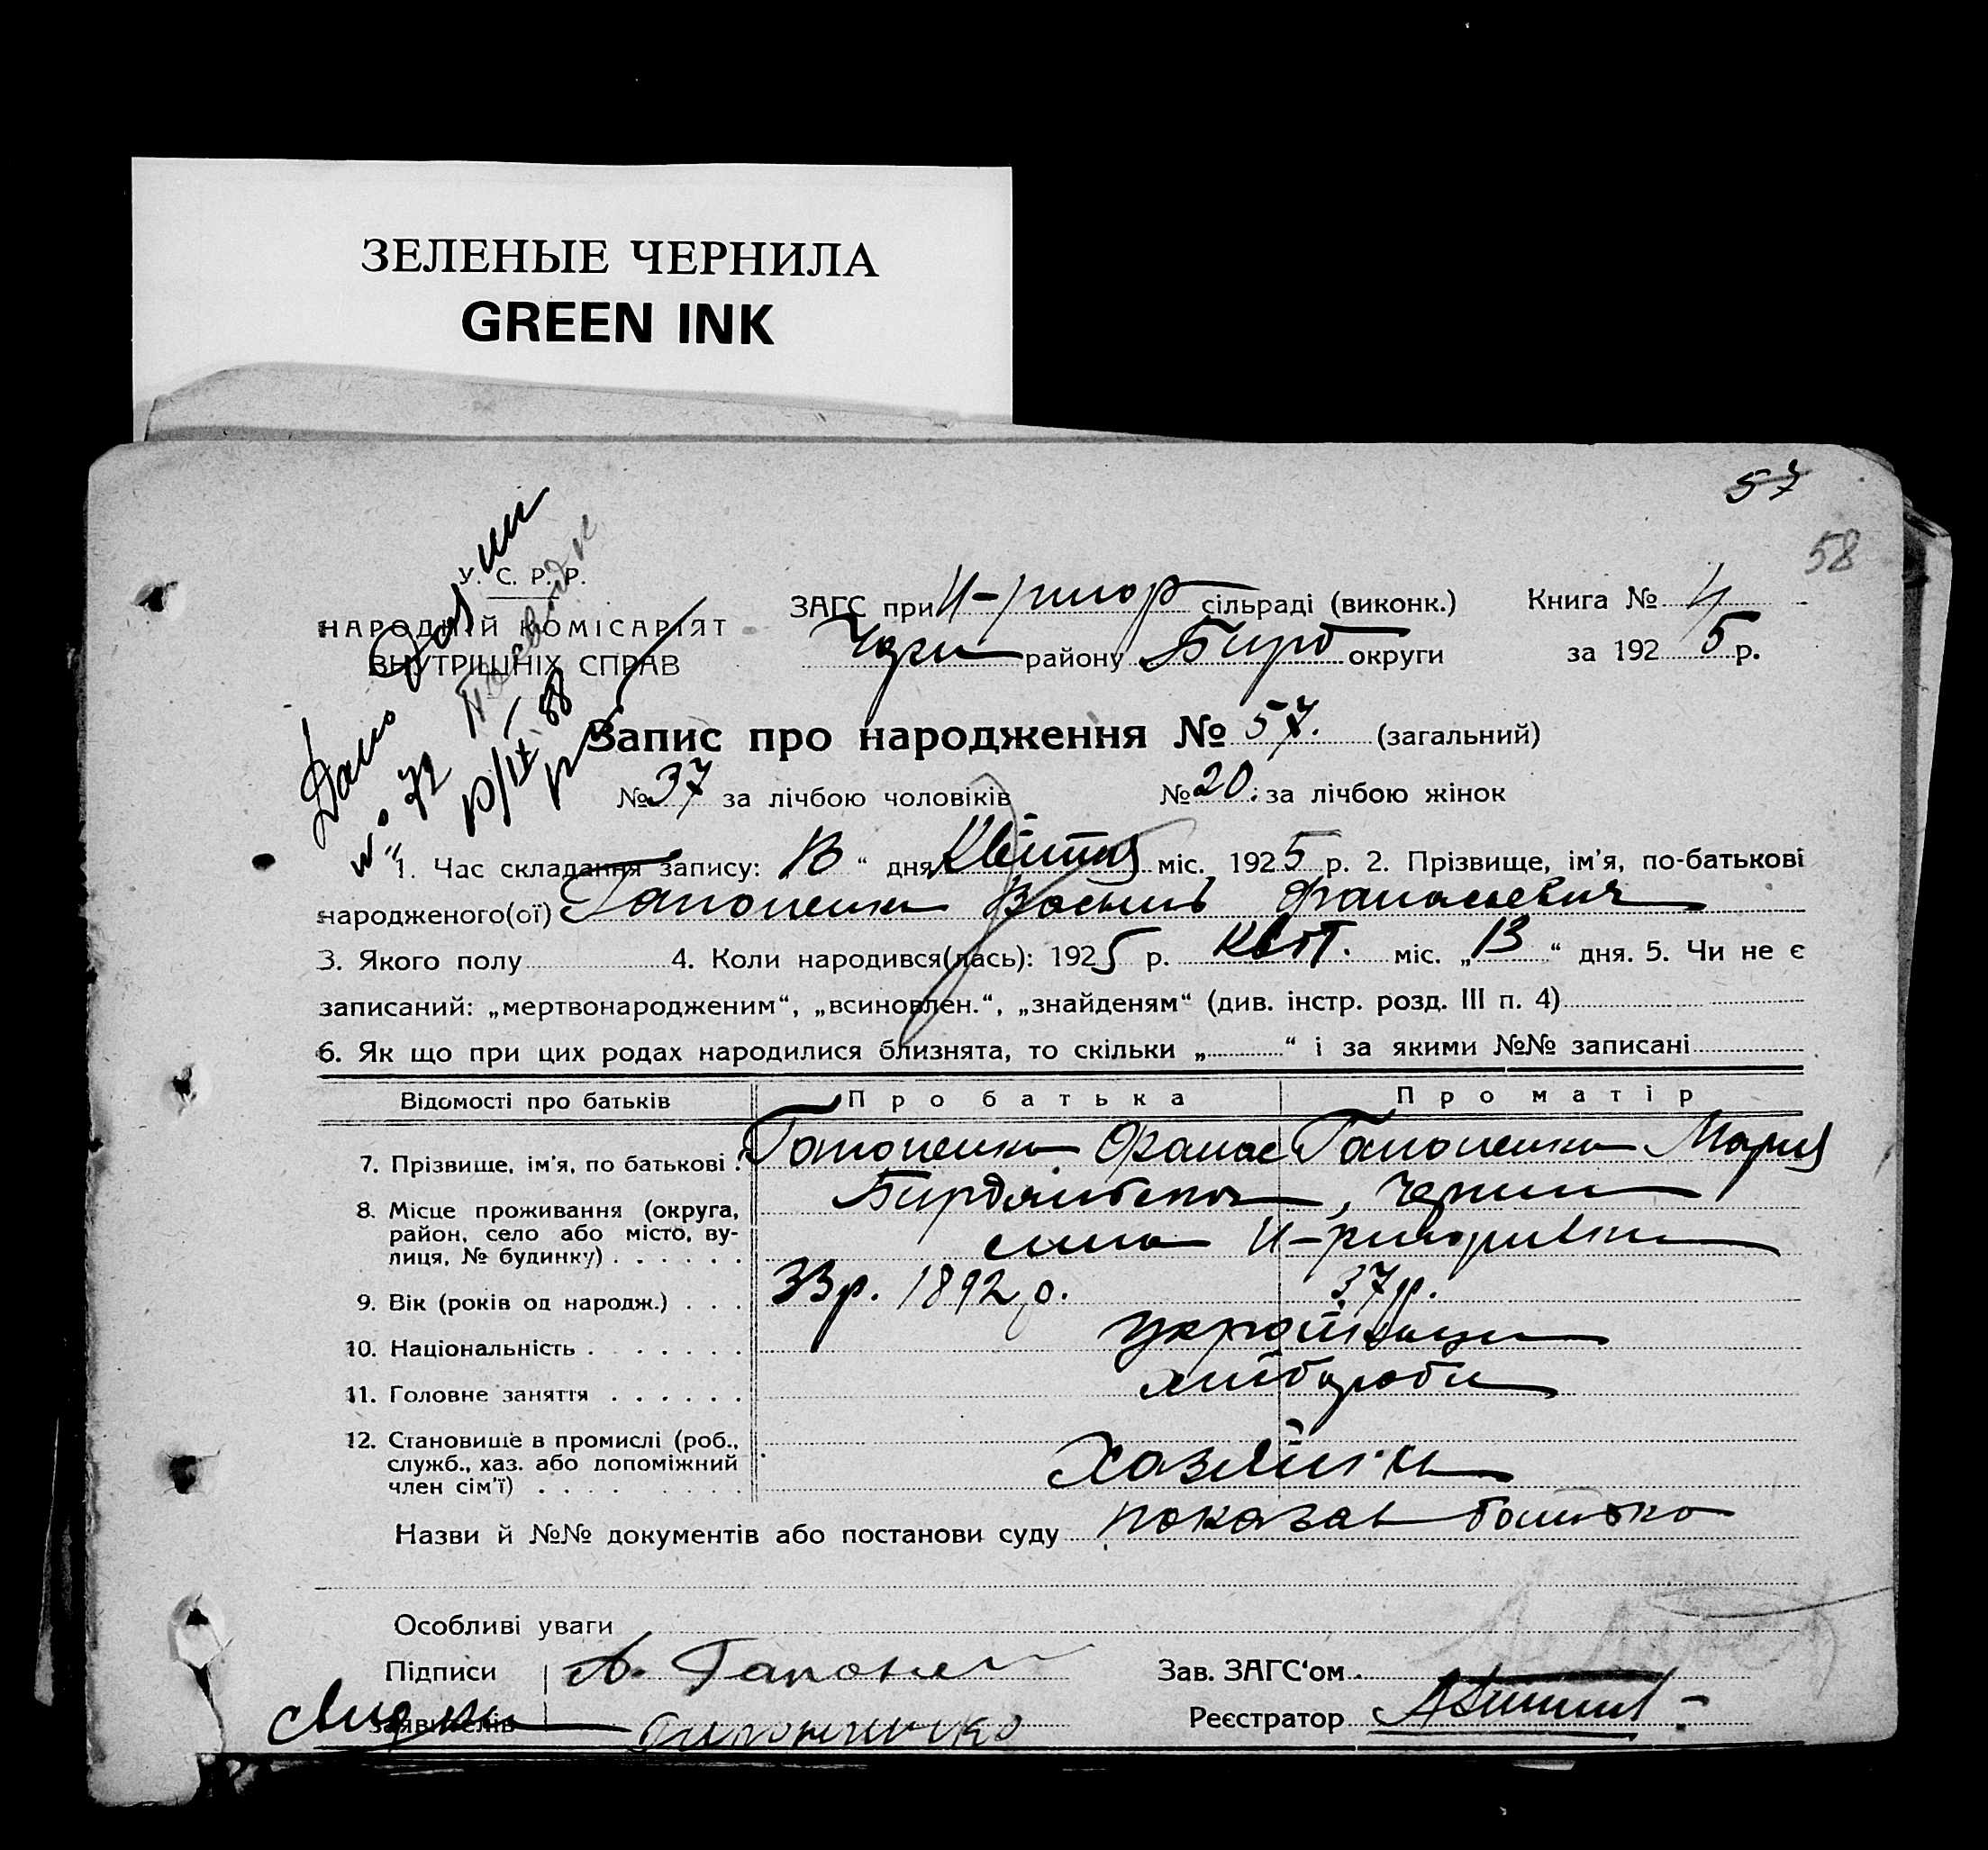 ЗЕЛЕНЫЕ ЧЕРНИЛА
GREEN INK
57
58
У. С. Р. Р.
НАРОДНІЙ КОМІСАРІЯТ
ВНУТРІШНІХ СПРАВ
ЗАГС при сільраді (виконк.) Книга № 4
району округи за 1925 р.
Запис про народження № 57. (загальний)
№ 37 за лічбою чоловіків № 20. за лічбою жінок
1. Час складання запису: „13“ дня Квітня міс. 1925 р. 2. Прізвище, ім'я, по-батькові
народженого(ої) Гапоненко Василь Фанасьевич
3. Якого полу 4. Коли народився(лась): 1925 р. Квіт. міс. „13“ дня. 5. Чи не є
записаний: „мертвонародженим“, „всиновлен.“, „знайденям“ (див. інстр. розд. III п. 4)
6. Як що при цих родах народилися близнята, то скільки „ “ і за якими №№ записані
Відомості про батьків Про батька Про матір
7. Прізвище, ім'я, по батькові . Гапоненко Фанас Гапоненко Мария
8. Місце проживання (округа,
район, село або місто, ву-
лиця, № будинку) . . . . . .
9. Вік (років од народж.) . . . 33 р. 1892 р. 37 р.
10. Національність . . . . . . . Українці
11. Головне заняття . . . . . . хлібороби
12. Становище в промислі (роб.,
служб., хаз. або допоміжний
член сім'ї) . . . . . . . . . Хазяїни
Назви й №№ документів або постанови суду показав батько
Особливі уваги
Підписи А. Гапонен Зав. ЗАГС'ом
заявителів Реєстратор